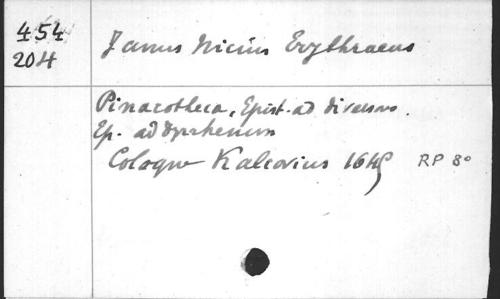 454
204
Janus Nicius Erythraeus
Pinacotheca, Epist. ad diversos.
Ep. ad Tyrrhenum
Cologne Kalcovius 1645 RP 8o